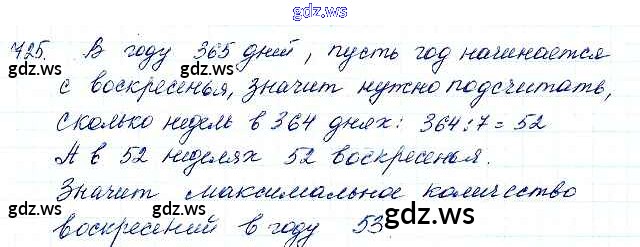 gdz.ws
725. В году 365 дней, пусть год начинается
с воскресенья, значит нужно подсчитать,
сколько недель в 364 днях: 364:7=52
А в 52 неделях 52 воскресенья.
Значит максимальное количество
воскресений в году 53
gdz.ws
gdz.ws
gdz.ws
gdz.ws
gdz.ws
gdz.ws